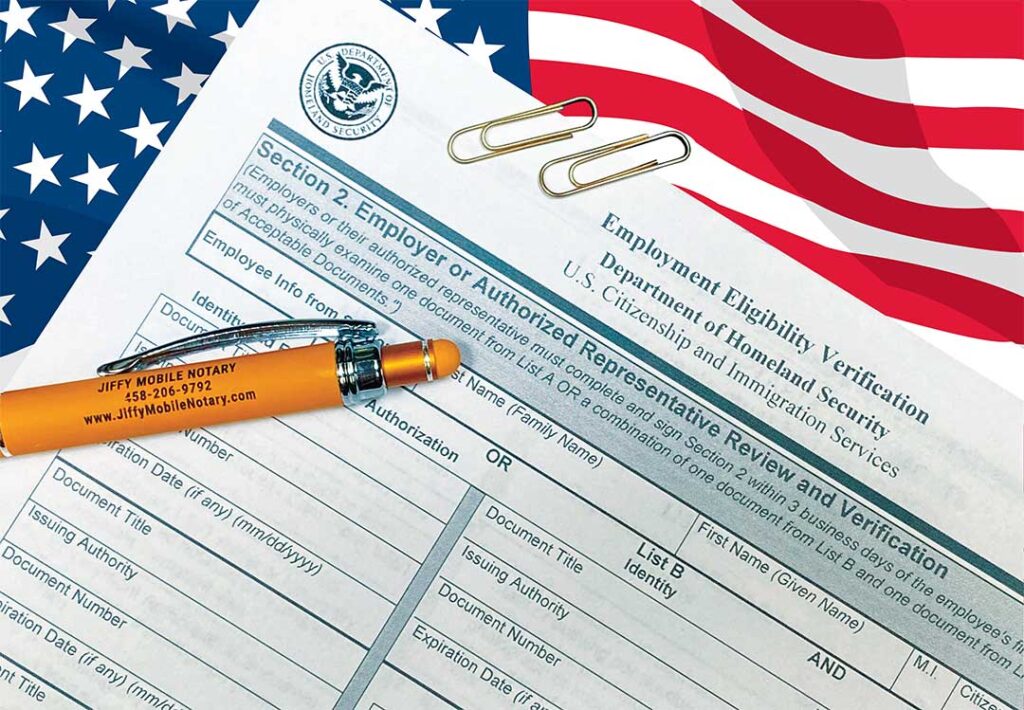 U.S. DEPARTMENT OF HOMELAND SECURITY
Employment Eligibility Verification
Department of Homeland Security
U.S. Citizenship and Immigration Services
Section 2. Employer or Authorized Representative Review and Verification
(Employers or their authorized representative must complete and sign Section 2 within 3 business days of the employee's
must physically examine one document from List A OR a combination of one document from List B and one document from
of Acceptable Documents.")
Employee Info from
Name (Family Name)
First Name (Given Name)
M.I.
Identity
Authorization
OR
List B
Identity
AND
JIFFY MOBILE NOTARY
458-206-9792
www.JiffyMobileNotary.com
Number
Expiration Date (if any) (mm/dd/yyyy)
Document Title
Issuing Authority
Document Number
Expiration Date (if any) (mm/dd/yyyy)
Title
Document Title
Issuing Authority
Document Number
Expiration Date (if any)